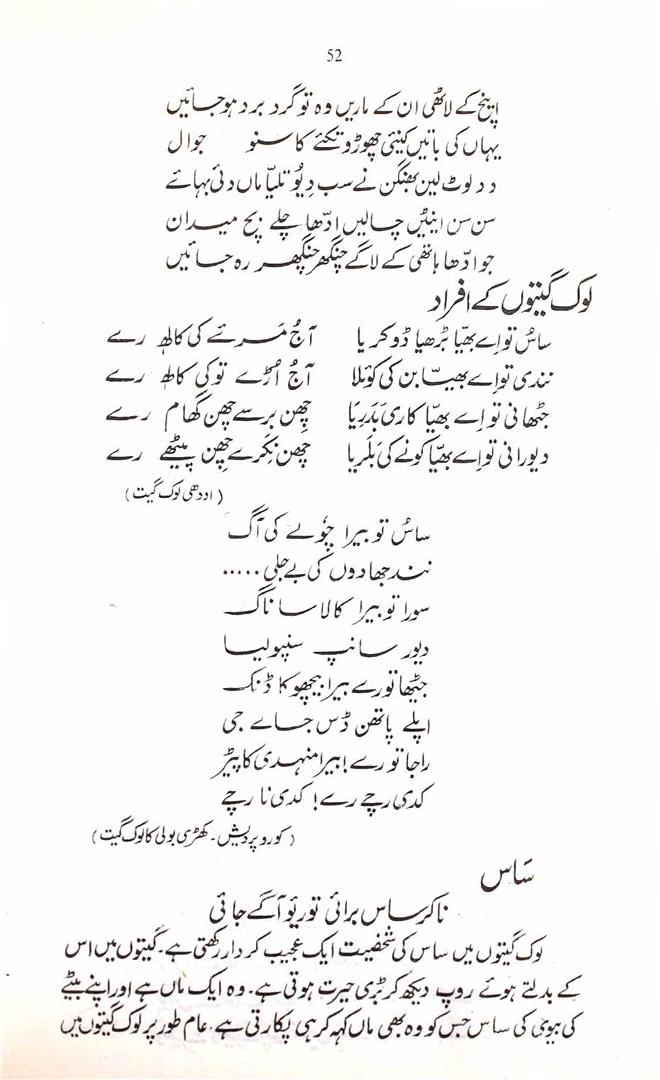 52
اینچ کے لاٹھی ان کے ماریں وہ تو گرد برد ہو جائیں
یہاں کی باتیں کینئی چھوڑو تکئے کا سنو جوال
دد لوٹ لین بھنگن نے سب دیؤ تلیّا ماں دئی بہائے
سن سن اینٹیں چالیں ادّھا چلے بیچ میدان
جو ادّھا ہاتھی کے لاگے چنگھر چنگھر رہ جائیں
لوک گیتوں کے افراد
ساسُ تو اے بھیّا بڑھیا ڈوکریا آجُ مَرئے کی کالھ رے
نندی تو اے بھیّا بن کی کوئلا آجُ اُڑے تو کی کالھ رے
جٹھانی تو اے بھیّا کاری بَدَریا چھِن برسے چھِن گھام رے
دیورانی تو اے بھیّا کونے کی بَلَریا چھِن نِکرے چھِن پیٹھے رے
(اودھی لوک گیت)
ساسُ تو بیرا چولہے کی آگ
نند بھادوں کی بے جلی.....
سورا تو بیرا کالا سا ناگ
دیور سانپ سنپولیا
جٹھا تو رے بیرا بچھو کا ڈنک
اپلے پاتھن ڈس جاے جی
راجا تو رے! بیرا منہدی کا پیڑ
کدی رچے رے! کدی نا رچے
(کورو پردیش۔ کھڑی بولی کا لوک گیت)
سَاس
نا کر ساس برائی تو ریو آگے جائی
لوک گیتوں میں ساس کی شخصیت ایک عجیب کردار رکھتی ہے۔ گیتوں میں اس
کے بدلتے ہوئے روپ دیکھ کر بڑی حیرت ہوتی ہے۔ وہ ایک ماں ہے اور اپنے بیٹے
کی بیوی کی ساس جس کو وہ بھی ماں کہہ کر ہی پکارتی ہے۔ عام طور پر لوک گیتوں میں